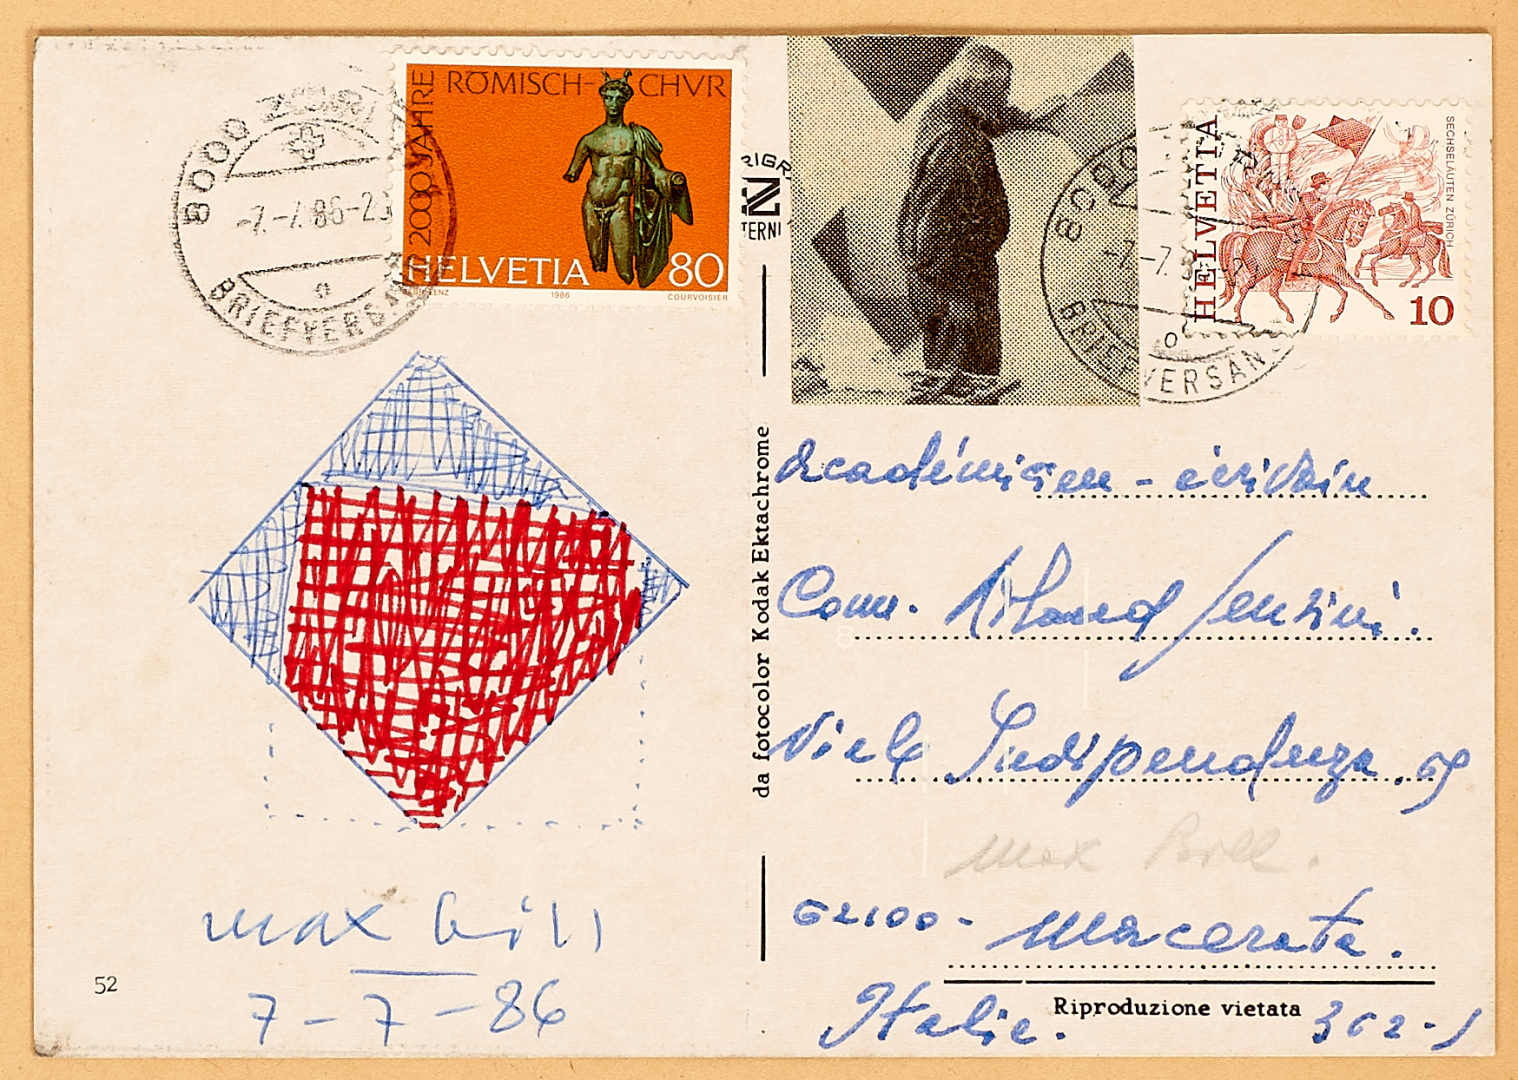 8000 ZÜRI
-7.-7.86-2
BRIEFVERSA
2000 JAHRE
RÖMISCH-CHVR
HELVETIA
80
1986
COURVOISIER
RIGR
TERNI
SECHSELÄUTEN ZÜRICH
HELVETIA
10
80
-7.-7.8 -2
BRIEFVERSAN
da fotocolor Kodak Ektachrome
académicien - écrivain
Com. Roland Senzini.
Viale Indipendenza. 69
Max Bill.
62100 - Macerata.
Italie.
Riproduzione vietata
302-1
max bill
7-7-86
52